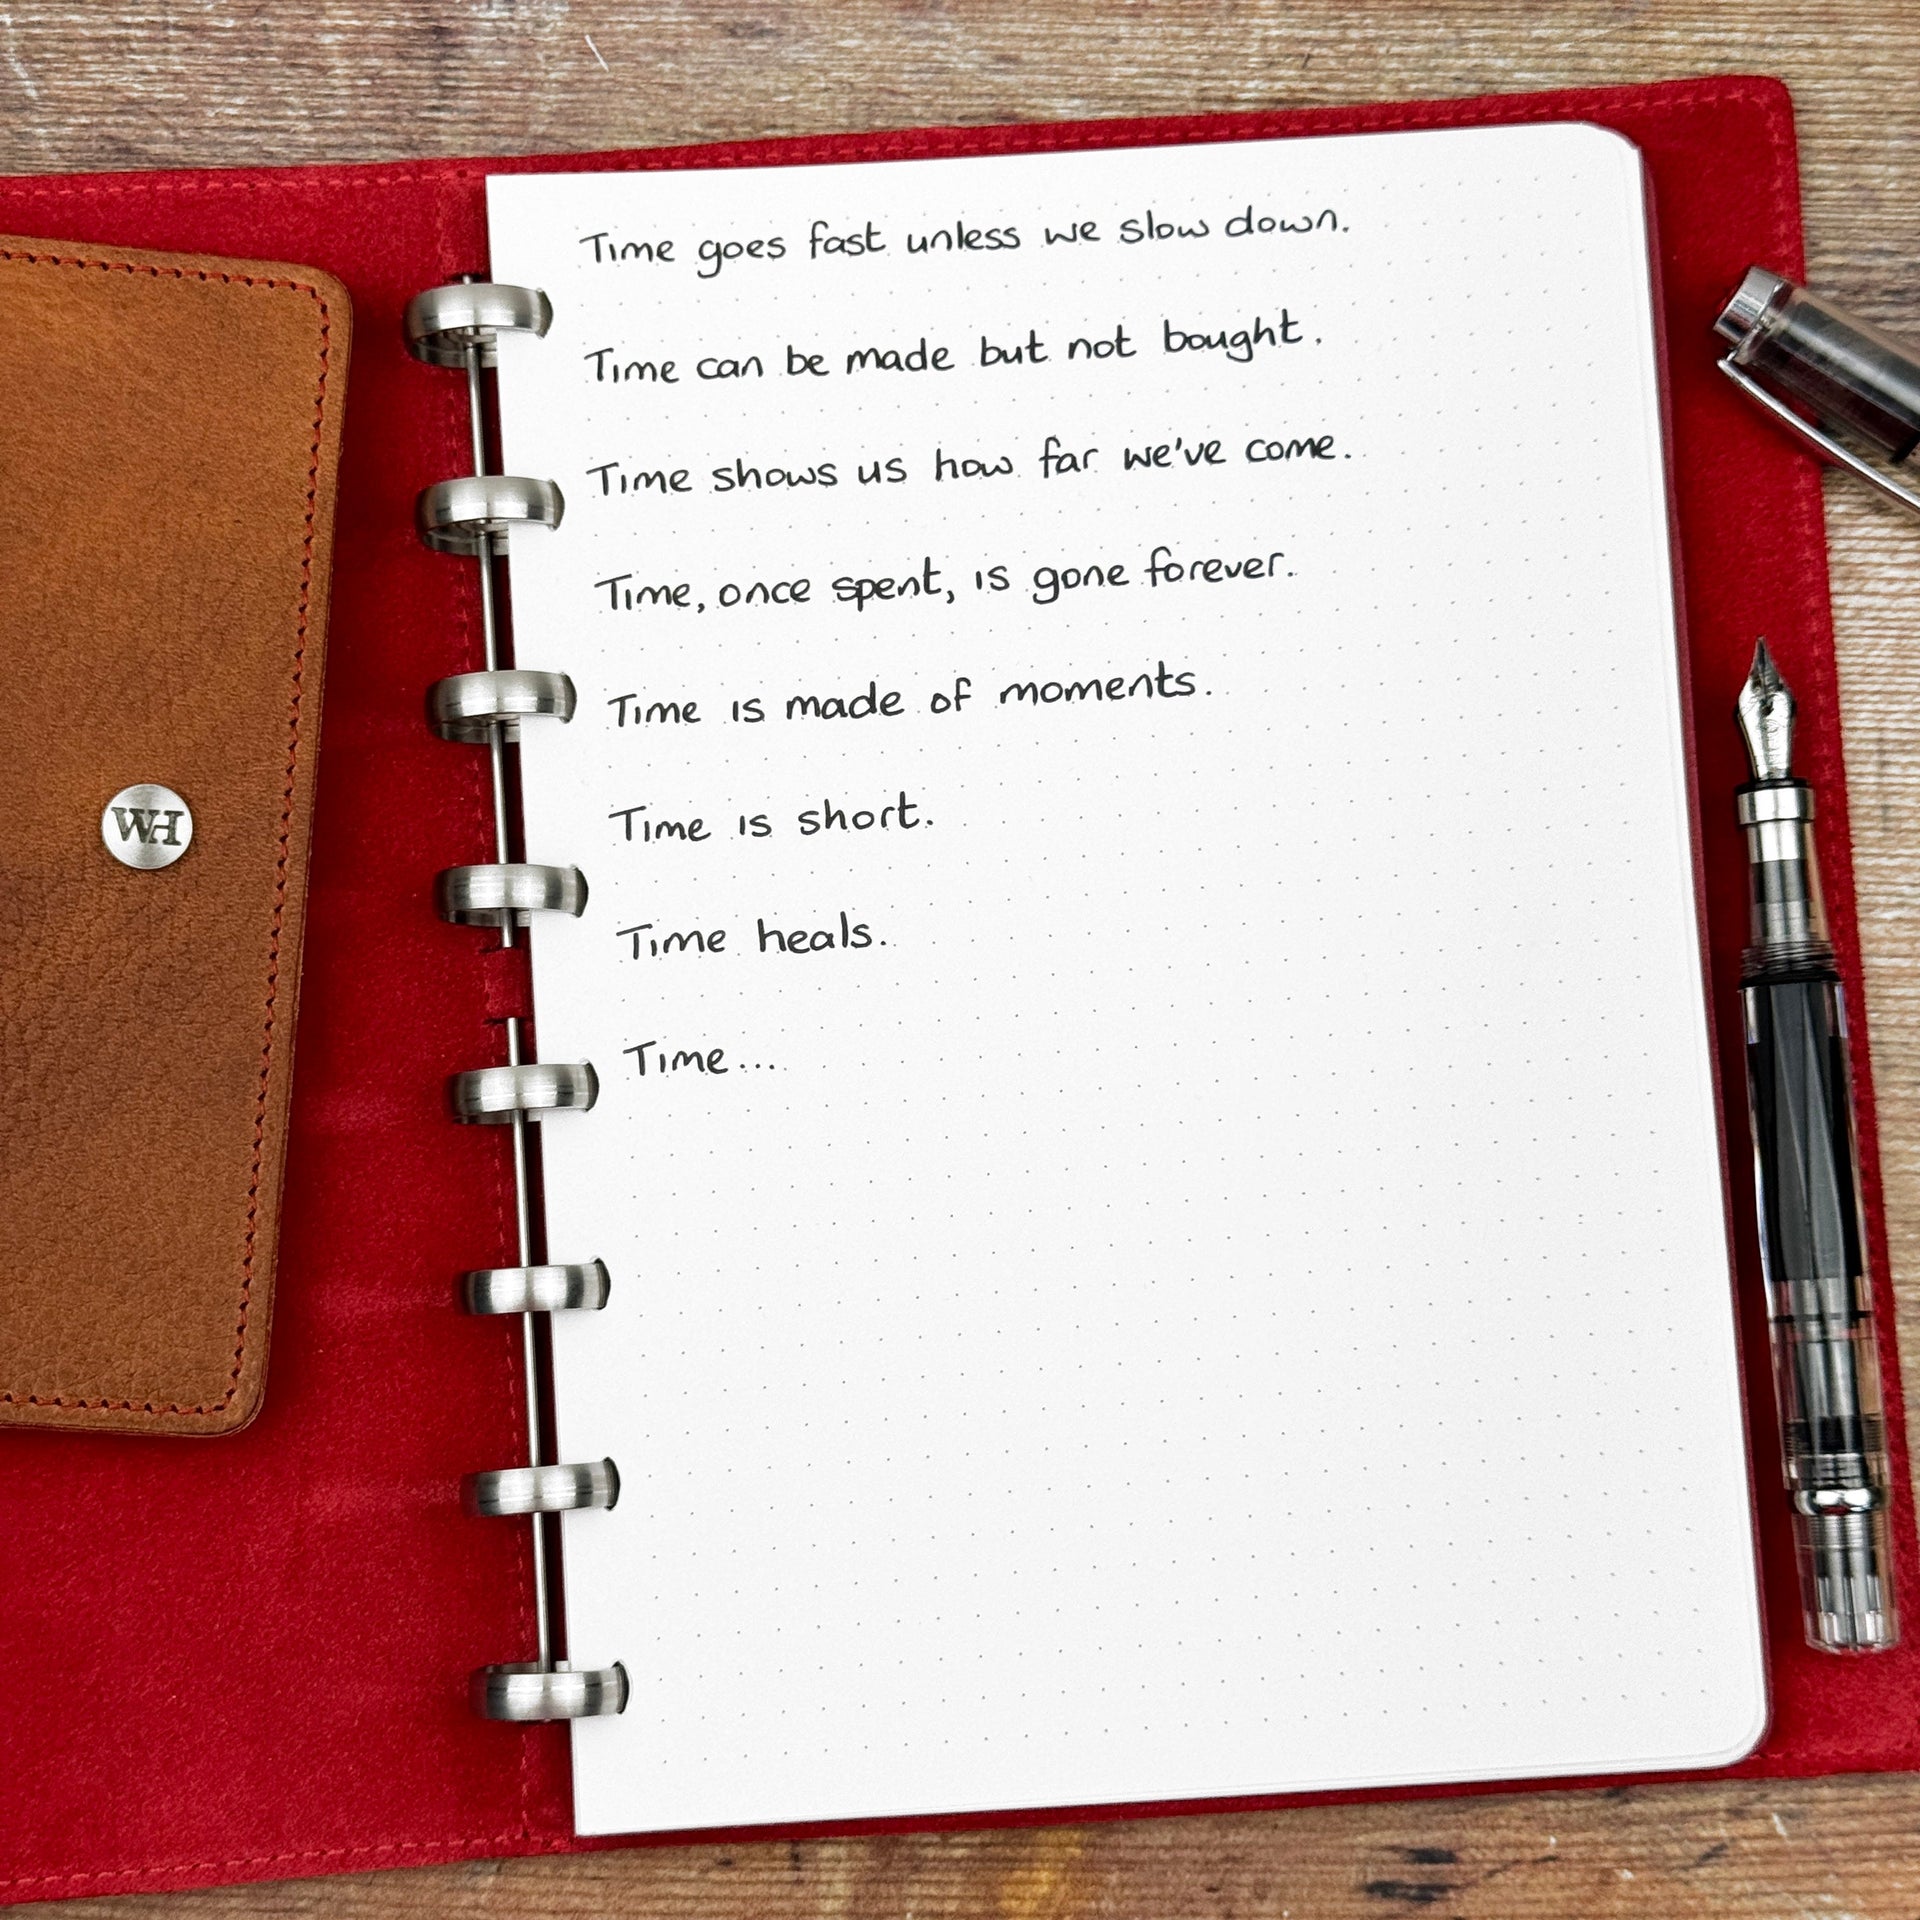 Time goes fast unless we slow down.
Time can be made but not bought.
Time shows us how far we've come.
Time, once spent, is gone forever.
Time is made of moments.
Time is short.
Time heals.
Time...
WH